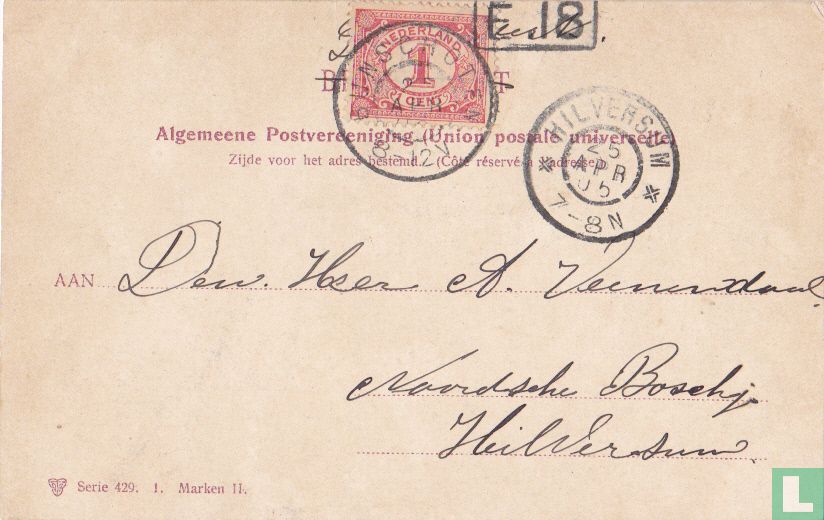 E 18
NEDERLAND
1
CENT
BUNSCHOTEN
APR
8-12V
HILVERSUM
25
APR
05
7-8N
Algemeene Postvereeniging (Union postale universelle)
Zijde voor het adres bestemd. (Côté réservé à l'adresse)
AAN Den. Heer A. Veenendaal
Noordsche Boschj
HeilVersum
Serie 429. 1. Marken II.
L
catawiki